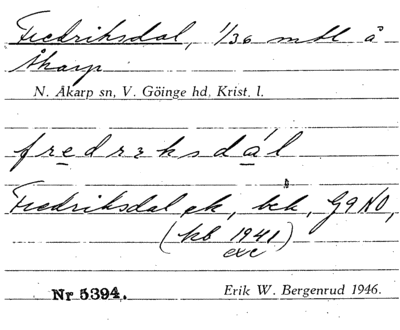 Fredriksdal, 1/36 mtl å
Åkarp
N. Åkarp sn, V. Göinge hd, Krist. l.
fredrɛksdál
Fredriksdal ek, bck, G9 NO,
(kb 1941)
exc
Nr 5394. Erik W. Bergenrud 1946.